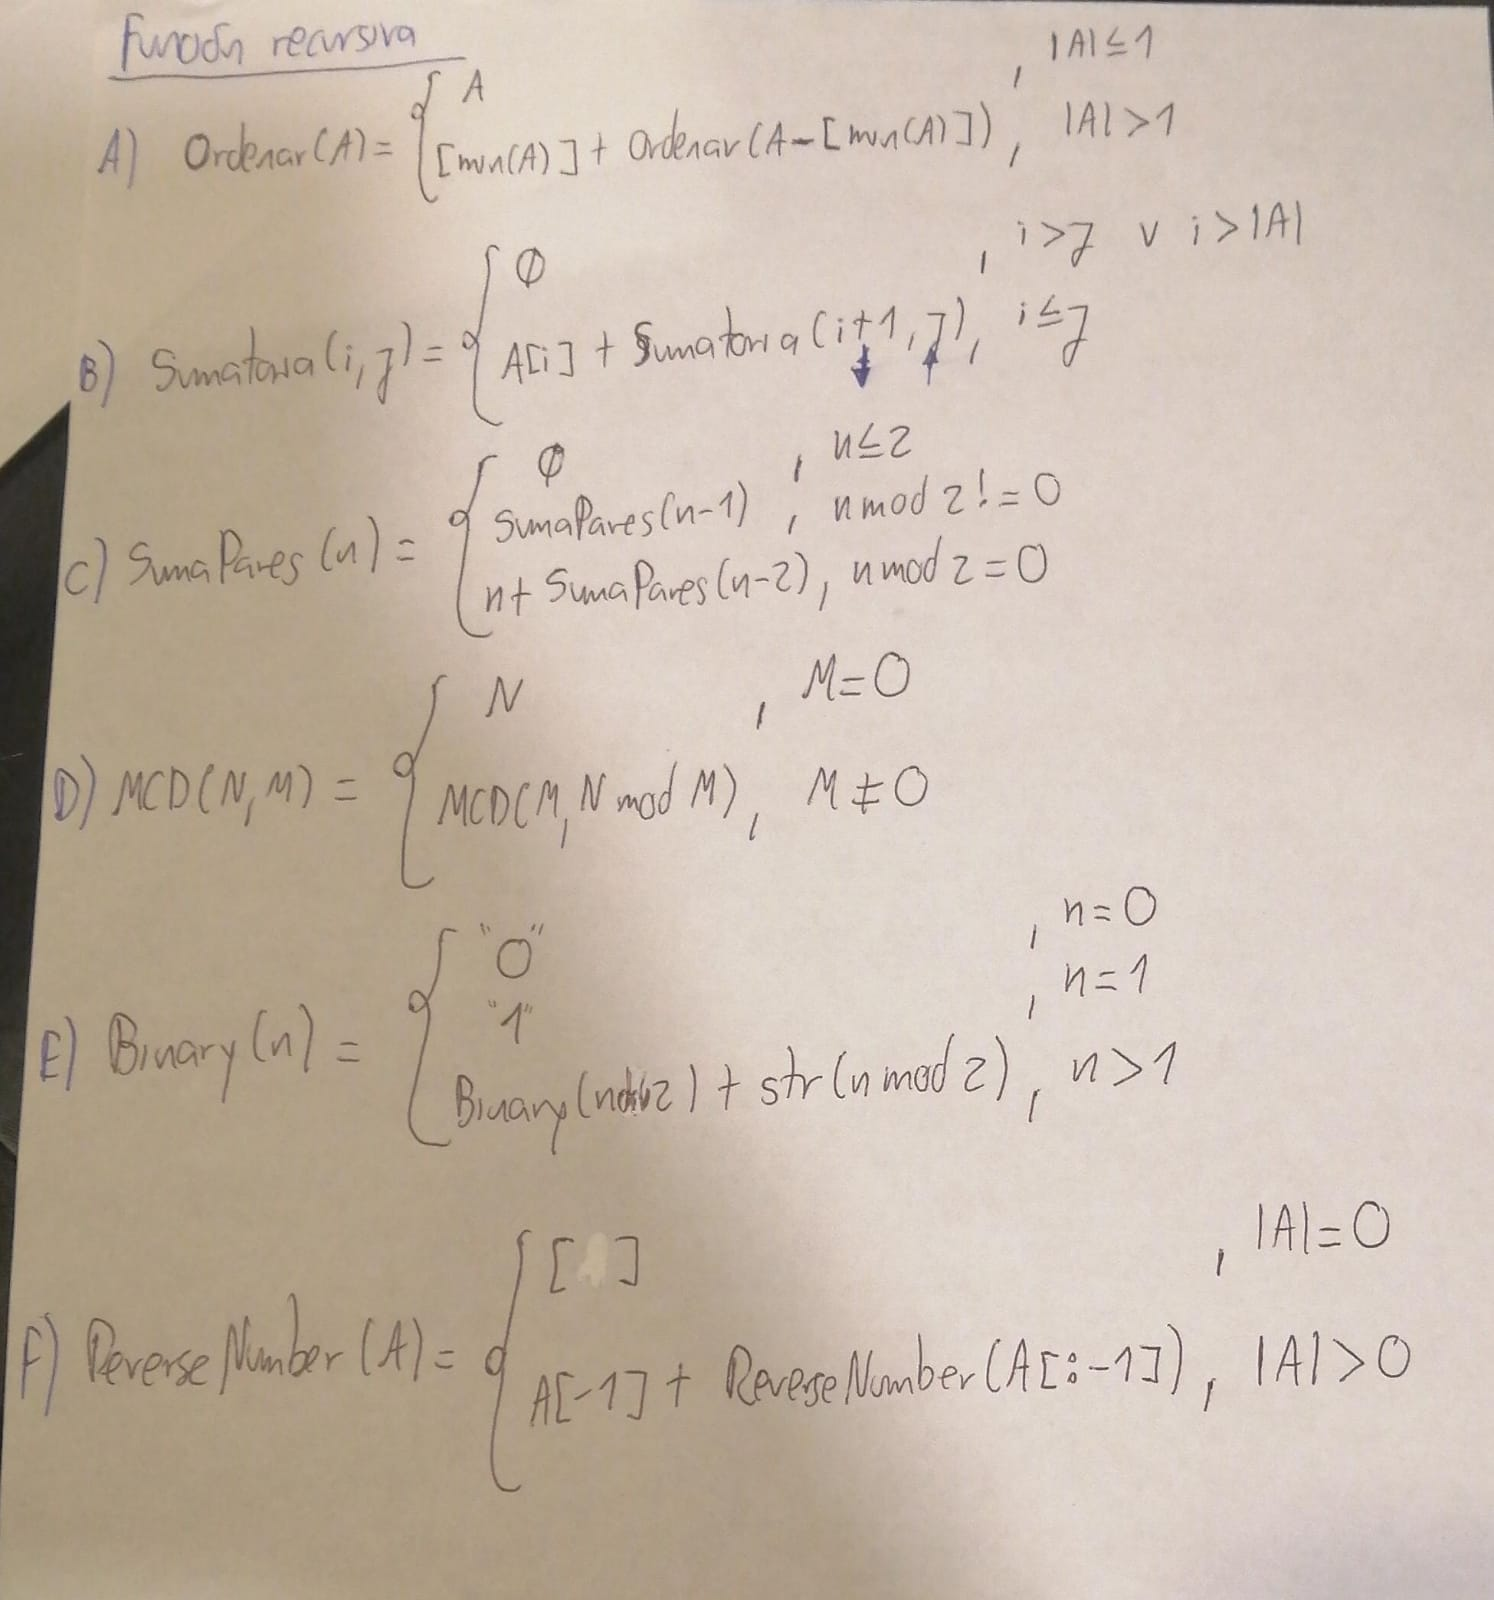 Función recursiva
A) Ordenar(A) = { A , |A| ≤ 1
[min(A)] + Ordenar(A-[min(A)]) , |A| > 1
B) Sumatoria(i,j) = { Ø , i>j v i>|A|
A[i] + Sumatoria(i+1,j), i≤j
C) SumaPares(n) = { Ø , n≤2
SumaPares(n-1) , n mod 2 != 0
n + SumaPares(n-2), n mod 2 = 0
D) MCD(N,M) = { N , M=0
MCD(M, N mod M), M ≠ 0
E) Binary(n) = { "0" , n=0
"1" , n=1
Binary(n div 2) + str(n mod 2), n > 1
F) ReverseNumber(A) = { [ ] , |A|=0
A[-1] + ReverseNumber(A[:-1]), |A|>0